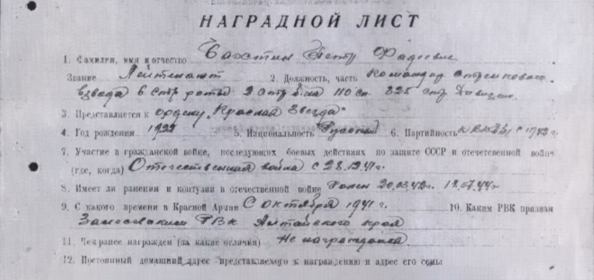 НАГРАДНОЙ ЛИСТ
1. Фамилия, имя и отчество Бахтин Петр Фадеевич
Звание Лейтенант 2. Должность, часть Командир стрелкового
взвода 6 стр роты 2 стр б-на 110 сп 325 стр дивизии
3. Представляется к ордену "Красная Звезда"
4. Год рождения 1922 5. Национальность Русский 6. Партийность
7. Участие в гражданской войне, последующих боевых действиях по защите СССР и отечественной войне
(где, когда) Отечественная война с 28.12.41г.
8. Имеет ли ранения и контузии в отечественной войне Ранен 20.03.42г. 18.07.44г.
9. С какого времени в Красной Армии С октября 1941 г. 10. Каким РВК призван
РВК Алтайского края
11. Чем ранее награжден (за какие отличия) Не награждался
12. Постоянный домашний адрес представляемого к награждению и адрес его семьи